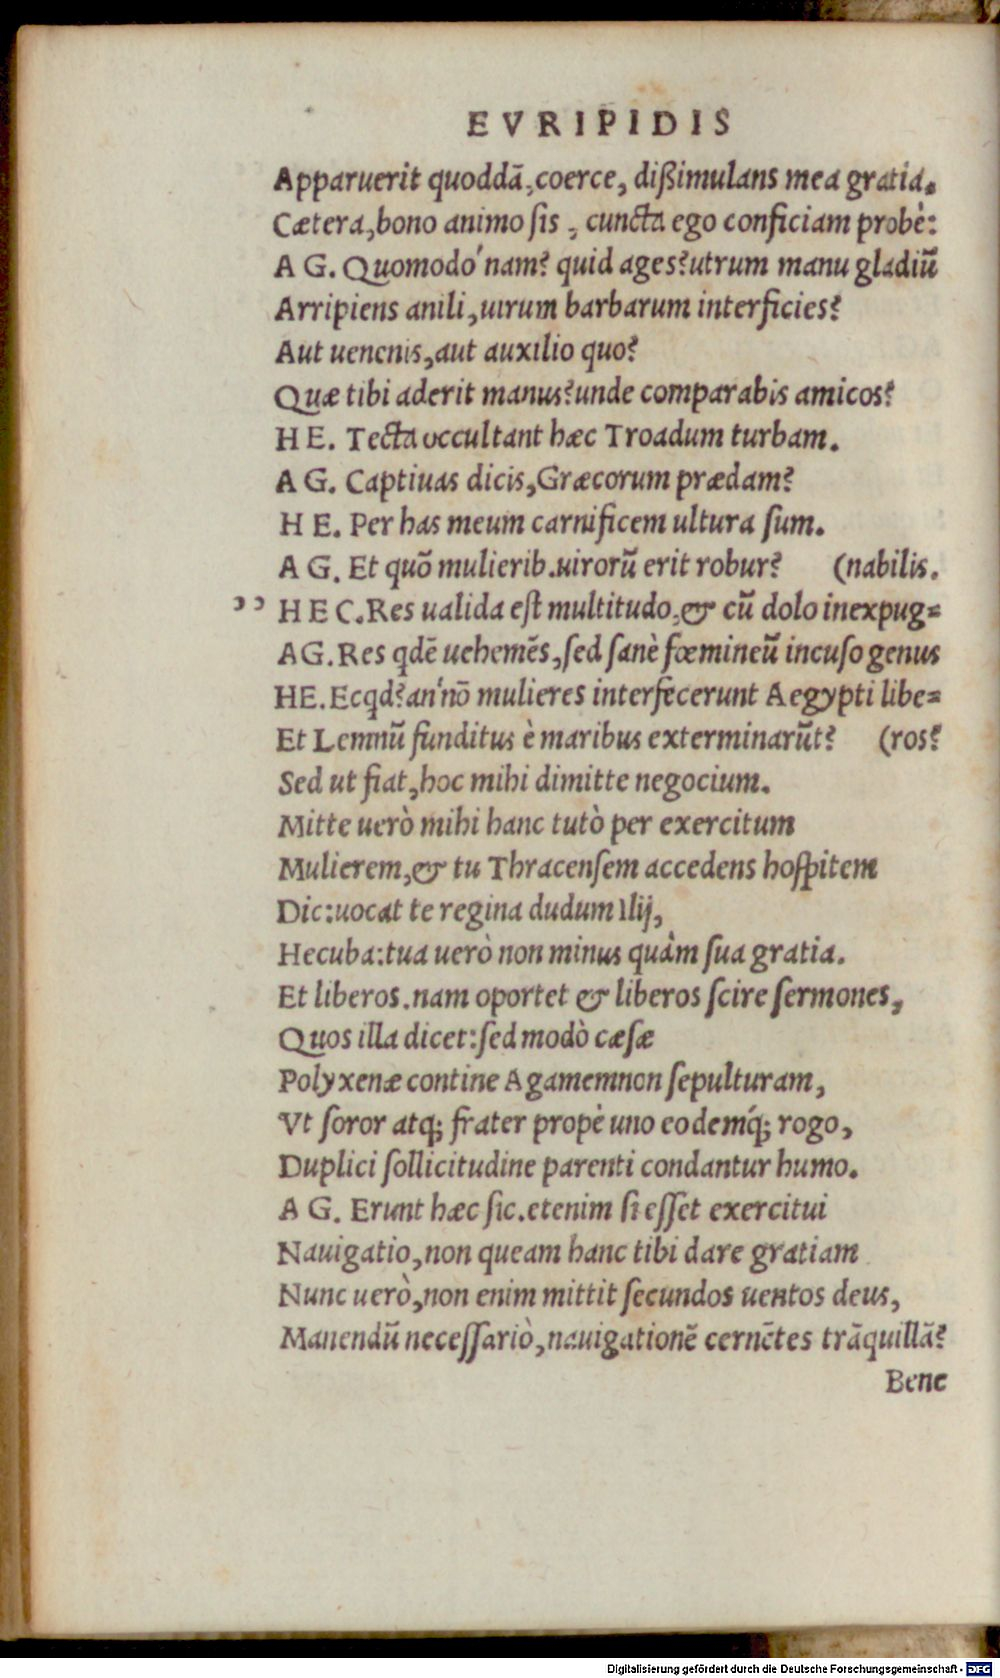 EVRIPIDIS
Apparuerit quoddã, coerce, dißimulans mea gratia.
Cætera, bono animo ſis, cuncta ego conficiam probè:
AG. Quomodo'nam? quid ages? utrum manu gladiũ
Arripiens anili, uirum barbarum interficies?
Aut uenenis, aut auxilio quo?
Quæ tibi aderit manus? unde comparabis amicos?
HE. Tecta occultant hæc Troadum turbam.
AG. Captiuas dicis, Græcorum prædam?
HE. Per has meum carnificem ultura ſum.
AG. Et quõ mulierib. uirorũ erit robur? (nabilis.
ɔɔ HEC. Res ualida eſt multitudo, & cũ dolo inexpug=
AG. Res qdẽ uehemẽs, ſed ſanè fœmineũ incuſo genus
HE. Ecqd? an'nõ mulieres interfecerunt Aegypti libe=
Et Lemnũ funditus è maribus exterminarũt? (ros?
Sed ut fiat, hoc mihi dimitte negocium.
Mitte uerò mihi hanc tutò per exercitum
Mulierem, & tu Thracenſem accedens hoſpitem
Dic: uocat te regina dudum Ilij,
Hecuba: tua uerò non minus quàm ſua gratia.
Et liberos. nam oportet & liberos ſcire ſermones,
Quos illa dicet: ſed modò cæſæ
Polyxenæ contine Agamemnon ſepulturam,
Vt ſoror atq; frater propè uno eodemq́; rogo,
Duplici ſollicitudine parenti condantur humo.
AG. Erunt hæc ſic. etenim ſi eſſet exercitui
Nauigatio, non queam hanc tibi dare gratiam
Nunc uerò, non enim mittit ſecundos uentos deus,
Manendũ neceſſariò, nauigationẽ cernẽtes trãquillã?
Bene
Digitalisierung gefördert durch die Deutsche Forschungsgemeinschaft - DFG